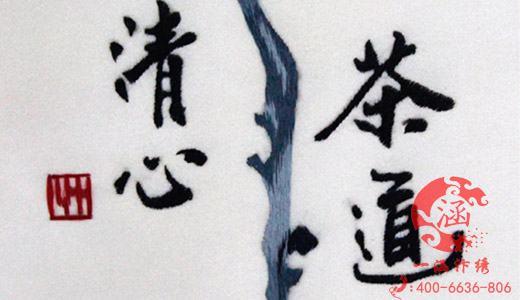 茶道
清心
涵
一涵作绣
:400-6636-806